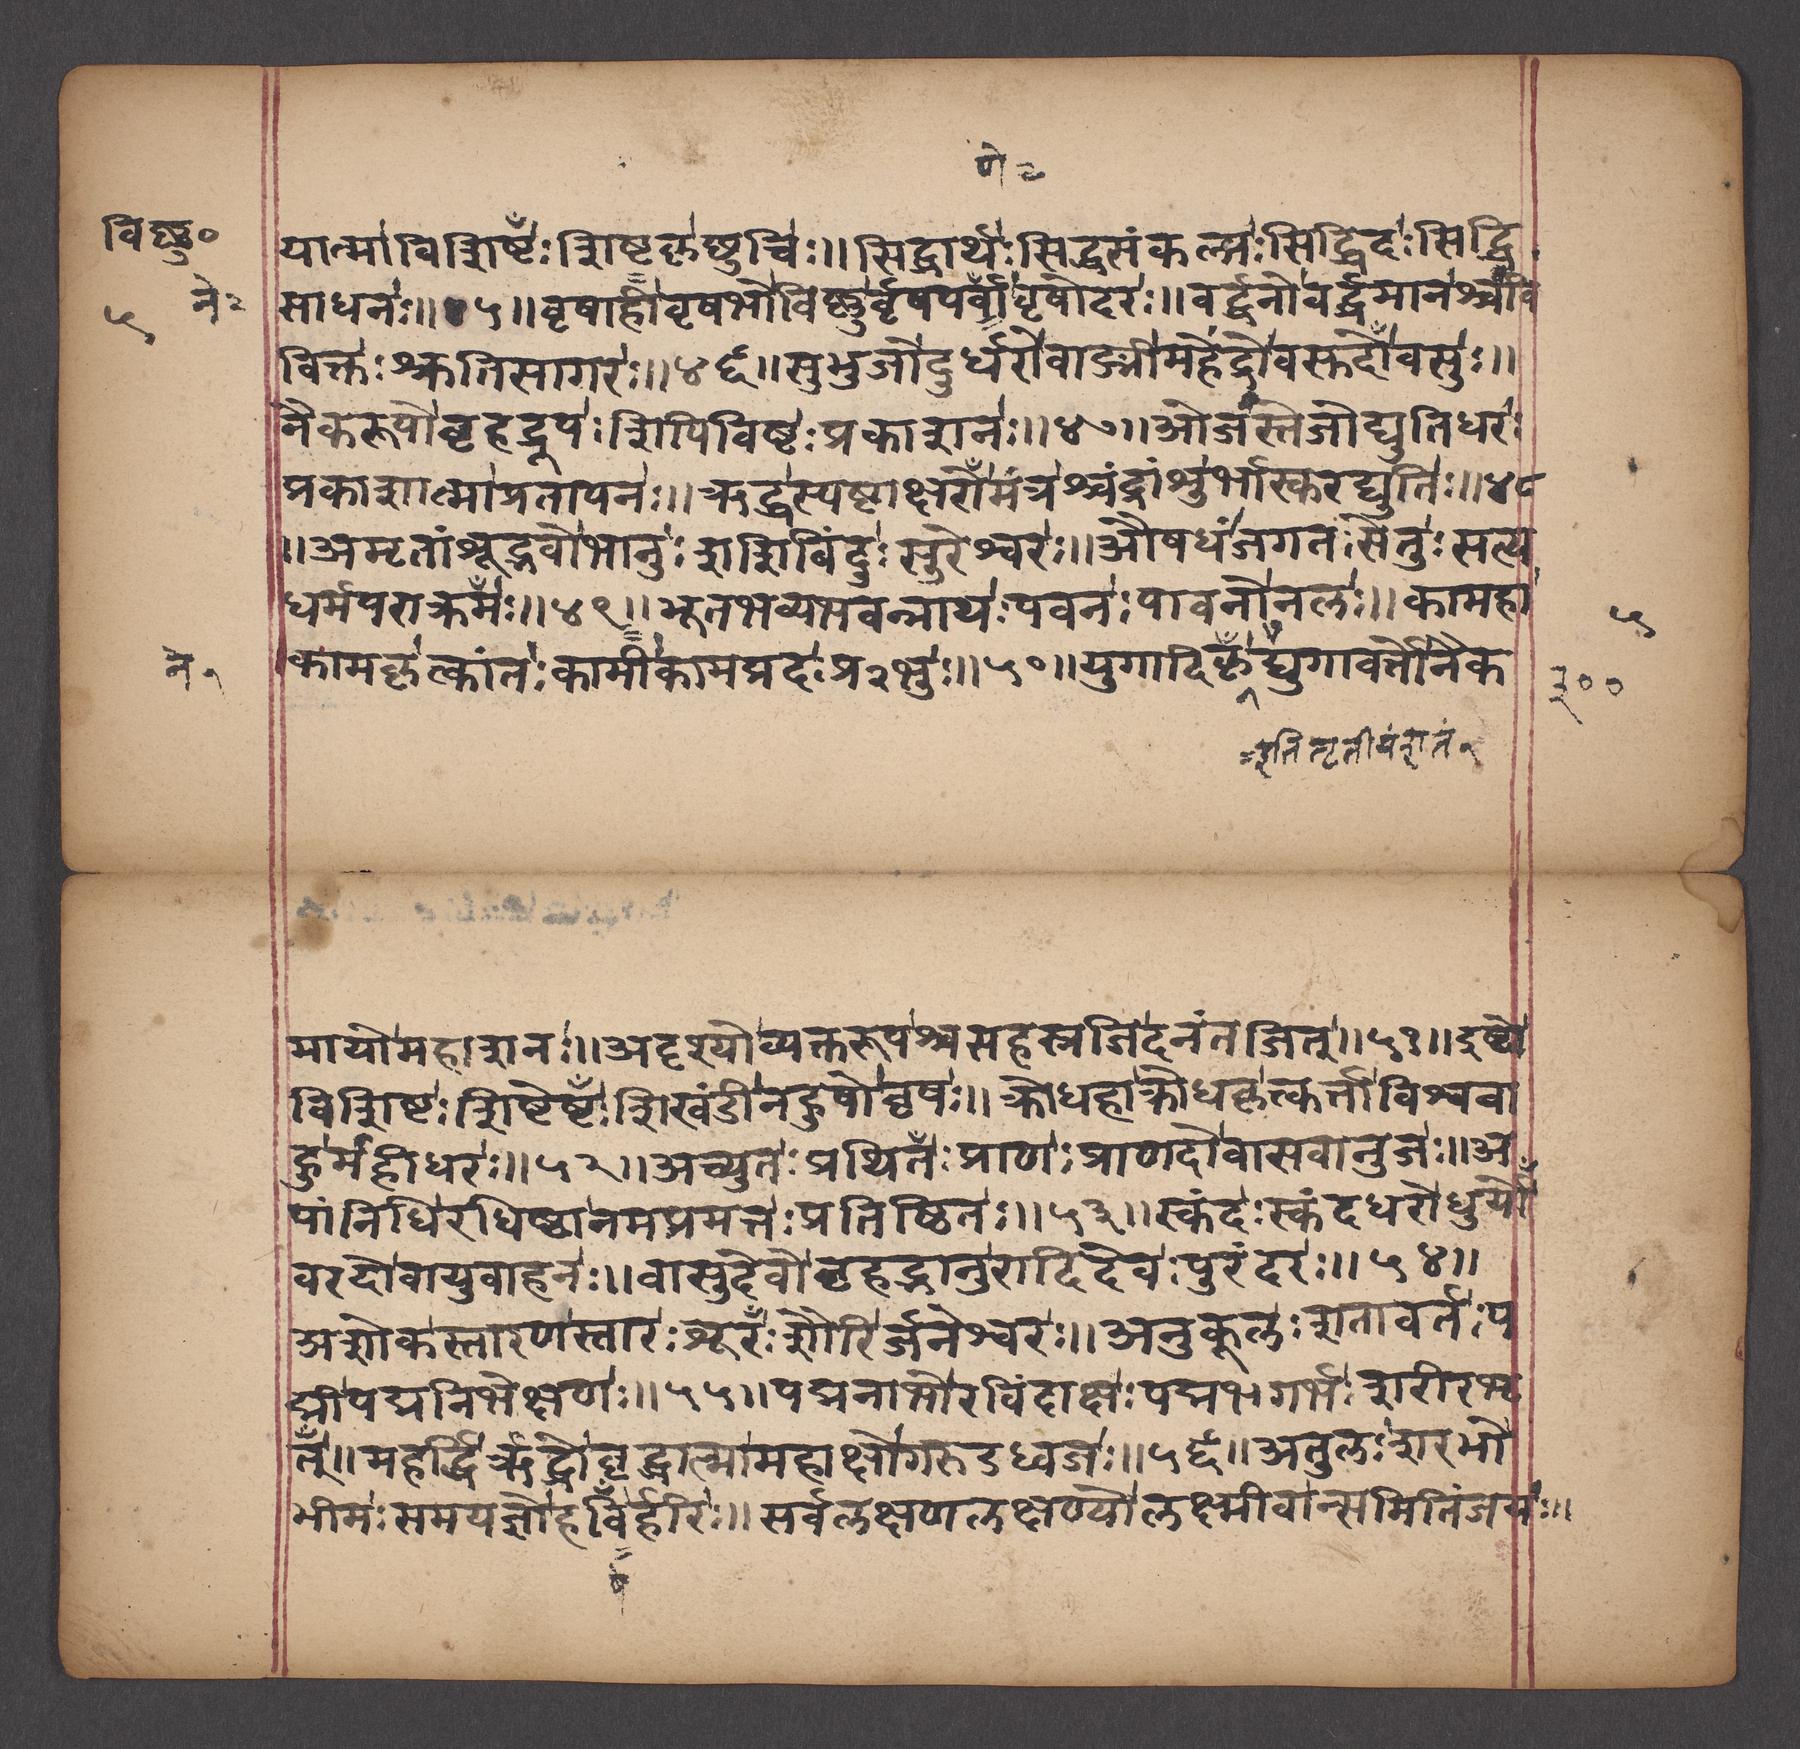 णे २
विष्णु०
यात्मा विशिष्टः शिष्टकृच्छुचिः ॥ सिद्धार्थः सिद्धसंकल्पः सिद्धिदः सिद्धि
साधनः ॥ ४५ ॥ वृषाही वृषभो विष्णुर्वृषपर्वा वृषोदरः ॥ वर्द्धनो वर्द्धमानश्च वि
ने २
५
वित्तः श्रुतिसागरः ॥ ४६ ॥ सुभुजो दुर्धरो वाग्मी महेंद्रो वसुदो वसुः ॥
नैकरूपो बृहद्रूपः शिपिविष्टः प्रकाशनः ॥ ४७ ॥ ओजस्तेजो द्युतिधरः
प्रकाशात्मा प्रतापनः ॥ ऋद्धस्पष्टाक्षरो मंत्रश्चंद्रांशुर्भास्करद्युतिः ॥ ४८
॥ अमृतांशूद्भवो भानुः शशिविंदुः सुरेश्वरः ॥ औषधं जगतः सेतुः सत्य
धर्मपराक्रमः ॥ ४९ ॥ भूतभव्यभवन्नाथः पवनः पावनोनलः ॥ कामहा
५
कामकृत्कांतः कामी कामप्रदः प्र२भुः ॥ ५० ॥ युगादिकृद्युगावर्तो नैक
३००
इति तृतीयं शतं
मायो महाशनः ॥ अदृश्यो व्यक्तरूपश्च सहस्रजिदनंतजित् ॥ ५१ ॥ इष्टो
विशिष्टः शिष्टेष्टः शिखंडी नहुषो वृषः ॥ क्रोधहा क्रोधकृत्कर्त्ता विश्ववा
हुर्महीधरः ॥ ५२ ॥ अच्युतः प्रथितः प्राणः प्राणदो वासवानुजः ॥ अ
पांनिधिरधिष्ठानमप्रमत्तः प्रतिष्ठितः ॥ ५३ ॥ स्कंदः स्कंदधरो धुर्यो
वरदो वायुवाहनः ॥ वासुदेवो बृहद्भानुरादिदेवः पुरंदरः ॥ ५४ ॥
अशोकस्तारणस्तारः शूरः शौरिर्जनेश्वरः ॥ अनुकूलः शतावर्तः प
द्मी पद्मनिभेक्षणः ॥ ५५ ॥ पद्मनाभोरविंदाक्षः पद्मगर्भः शरीरभृ
त् ॥ महर्द्धिर्ऋद्धो वृद्धात्मा महाक्षो गरुडध्वजः ॥ ५६ ॥ अतुलः शरभो
भीमः समयज्ञो हविर्हरिः ॥ सर्वलक्षणलक्षण्यो लक्ष्मीवान्समितिंजयः ॥